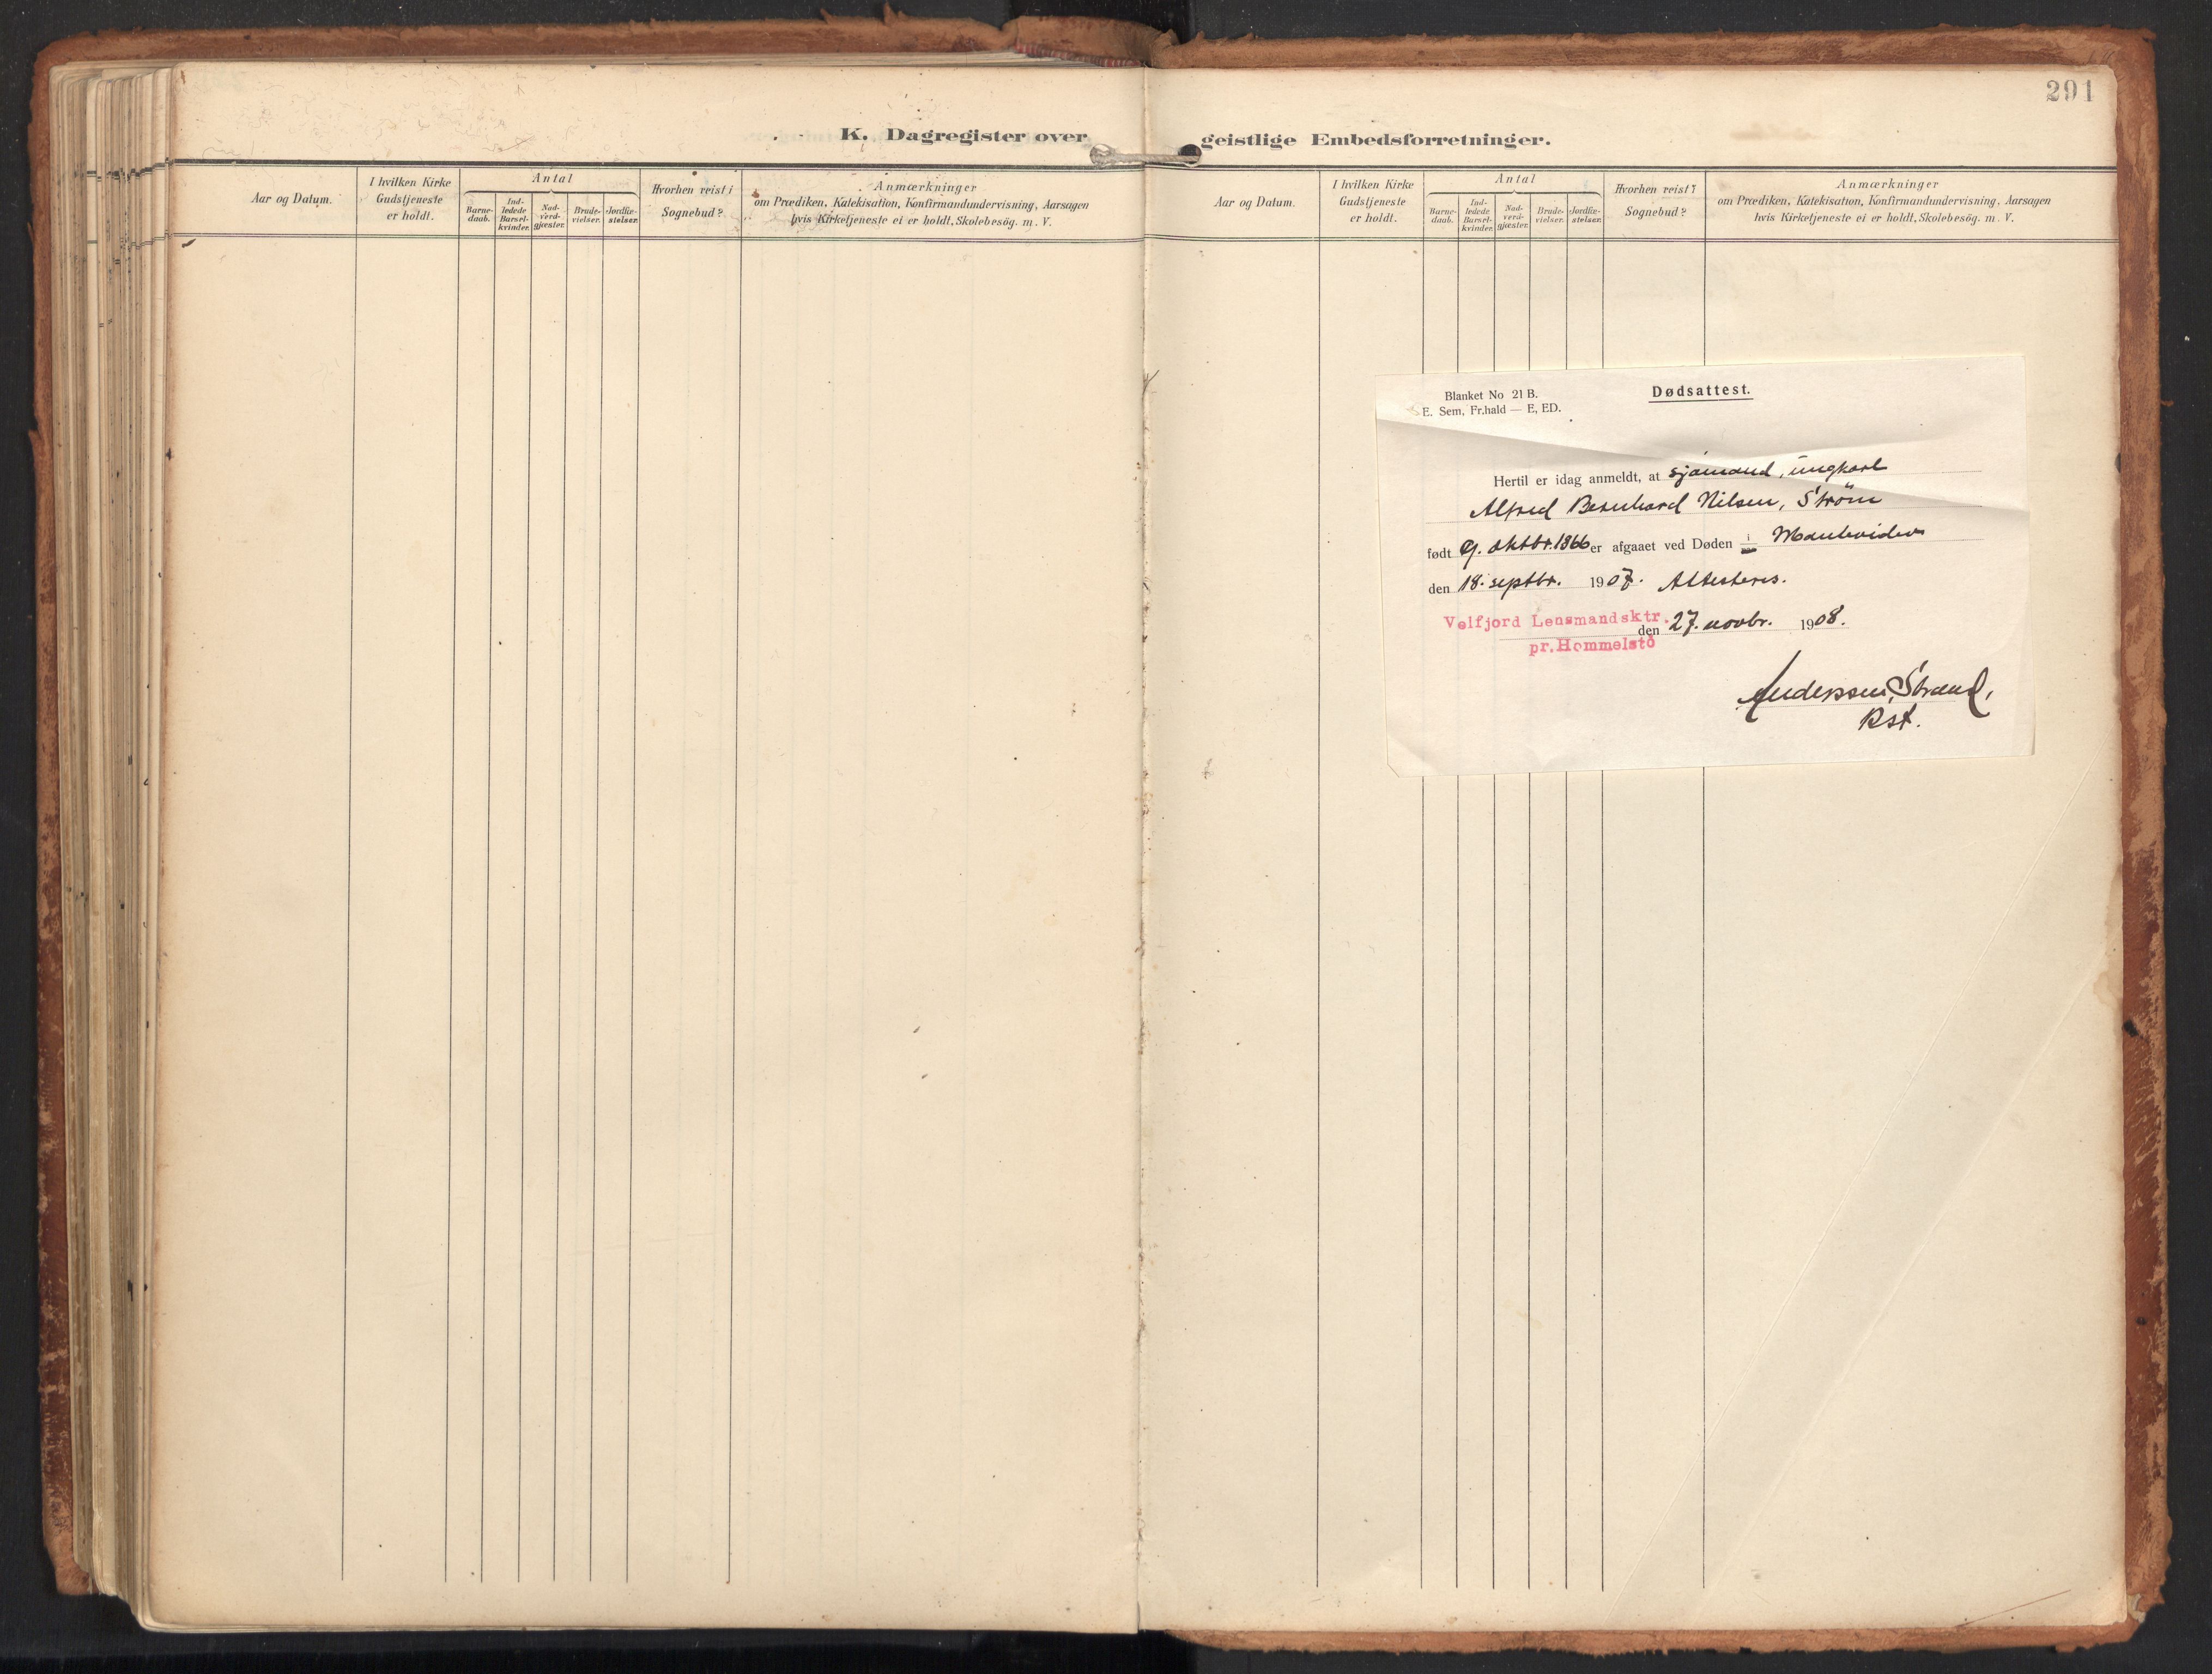 291
K. Dagregister over geistlige Embedsforretninger.
Aar og Datum.
I hvilken Kirke
Gudstjeneste
er holdt.
Antal
Barne-
daab.
Ind-
ledede
Barsel-
kvinder.
Nad-
verd-
gjæster.
Brude-
vielser.
Jordfæ-
stelser.
Hvorhen reist i
Sognebud?
Anmærkninger
om Prædiken, Katekisation, Konfirmandundervisning, Aarsagen
hvis Kirketjeneste ei er holdt, Skolebesög. m. V.
Aar og Datum.
I hvilken Kirke
Gudstjeneste
er holdt.
Antal
Barne-
daab.
Ind-
ledede
Barsel-
kvinder.
Nad-
verd-
gjæster.
Brude-
vielser.
Jordfæ-
stelser.
Hvorhen reist i
Sognebud?
Anmærkninger
om Prædiken, Katekisation, Konfirmandundervisning, Aarsagen
hvis Kirketjeneste ei er holdt, Skolebesög. m. V.
Blanket No 21 B.
E. Sem, Fr.hald — E, ED.
Dødsattest.
Hertil er idag anmeldt, at sjømand, ungkarl
Alfred Bernhard Nilsen, Strøm
født 9. oktbr. 1866 er afgaaet ved Døden i Montevideo
den 18. septbr. 1907. Attesteres.
Velfjord Lensmandsktr.
pr. Hommelstø
den 27. novbr. 1908.
Anderssen Strand,
Bst.